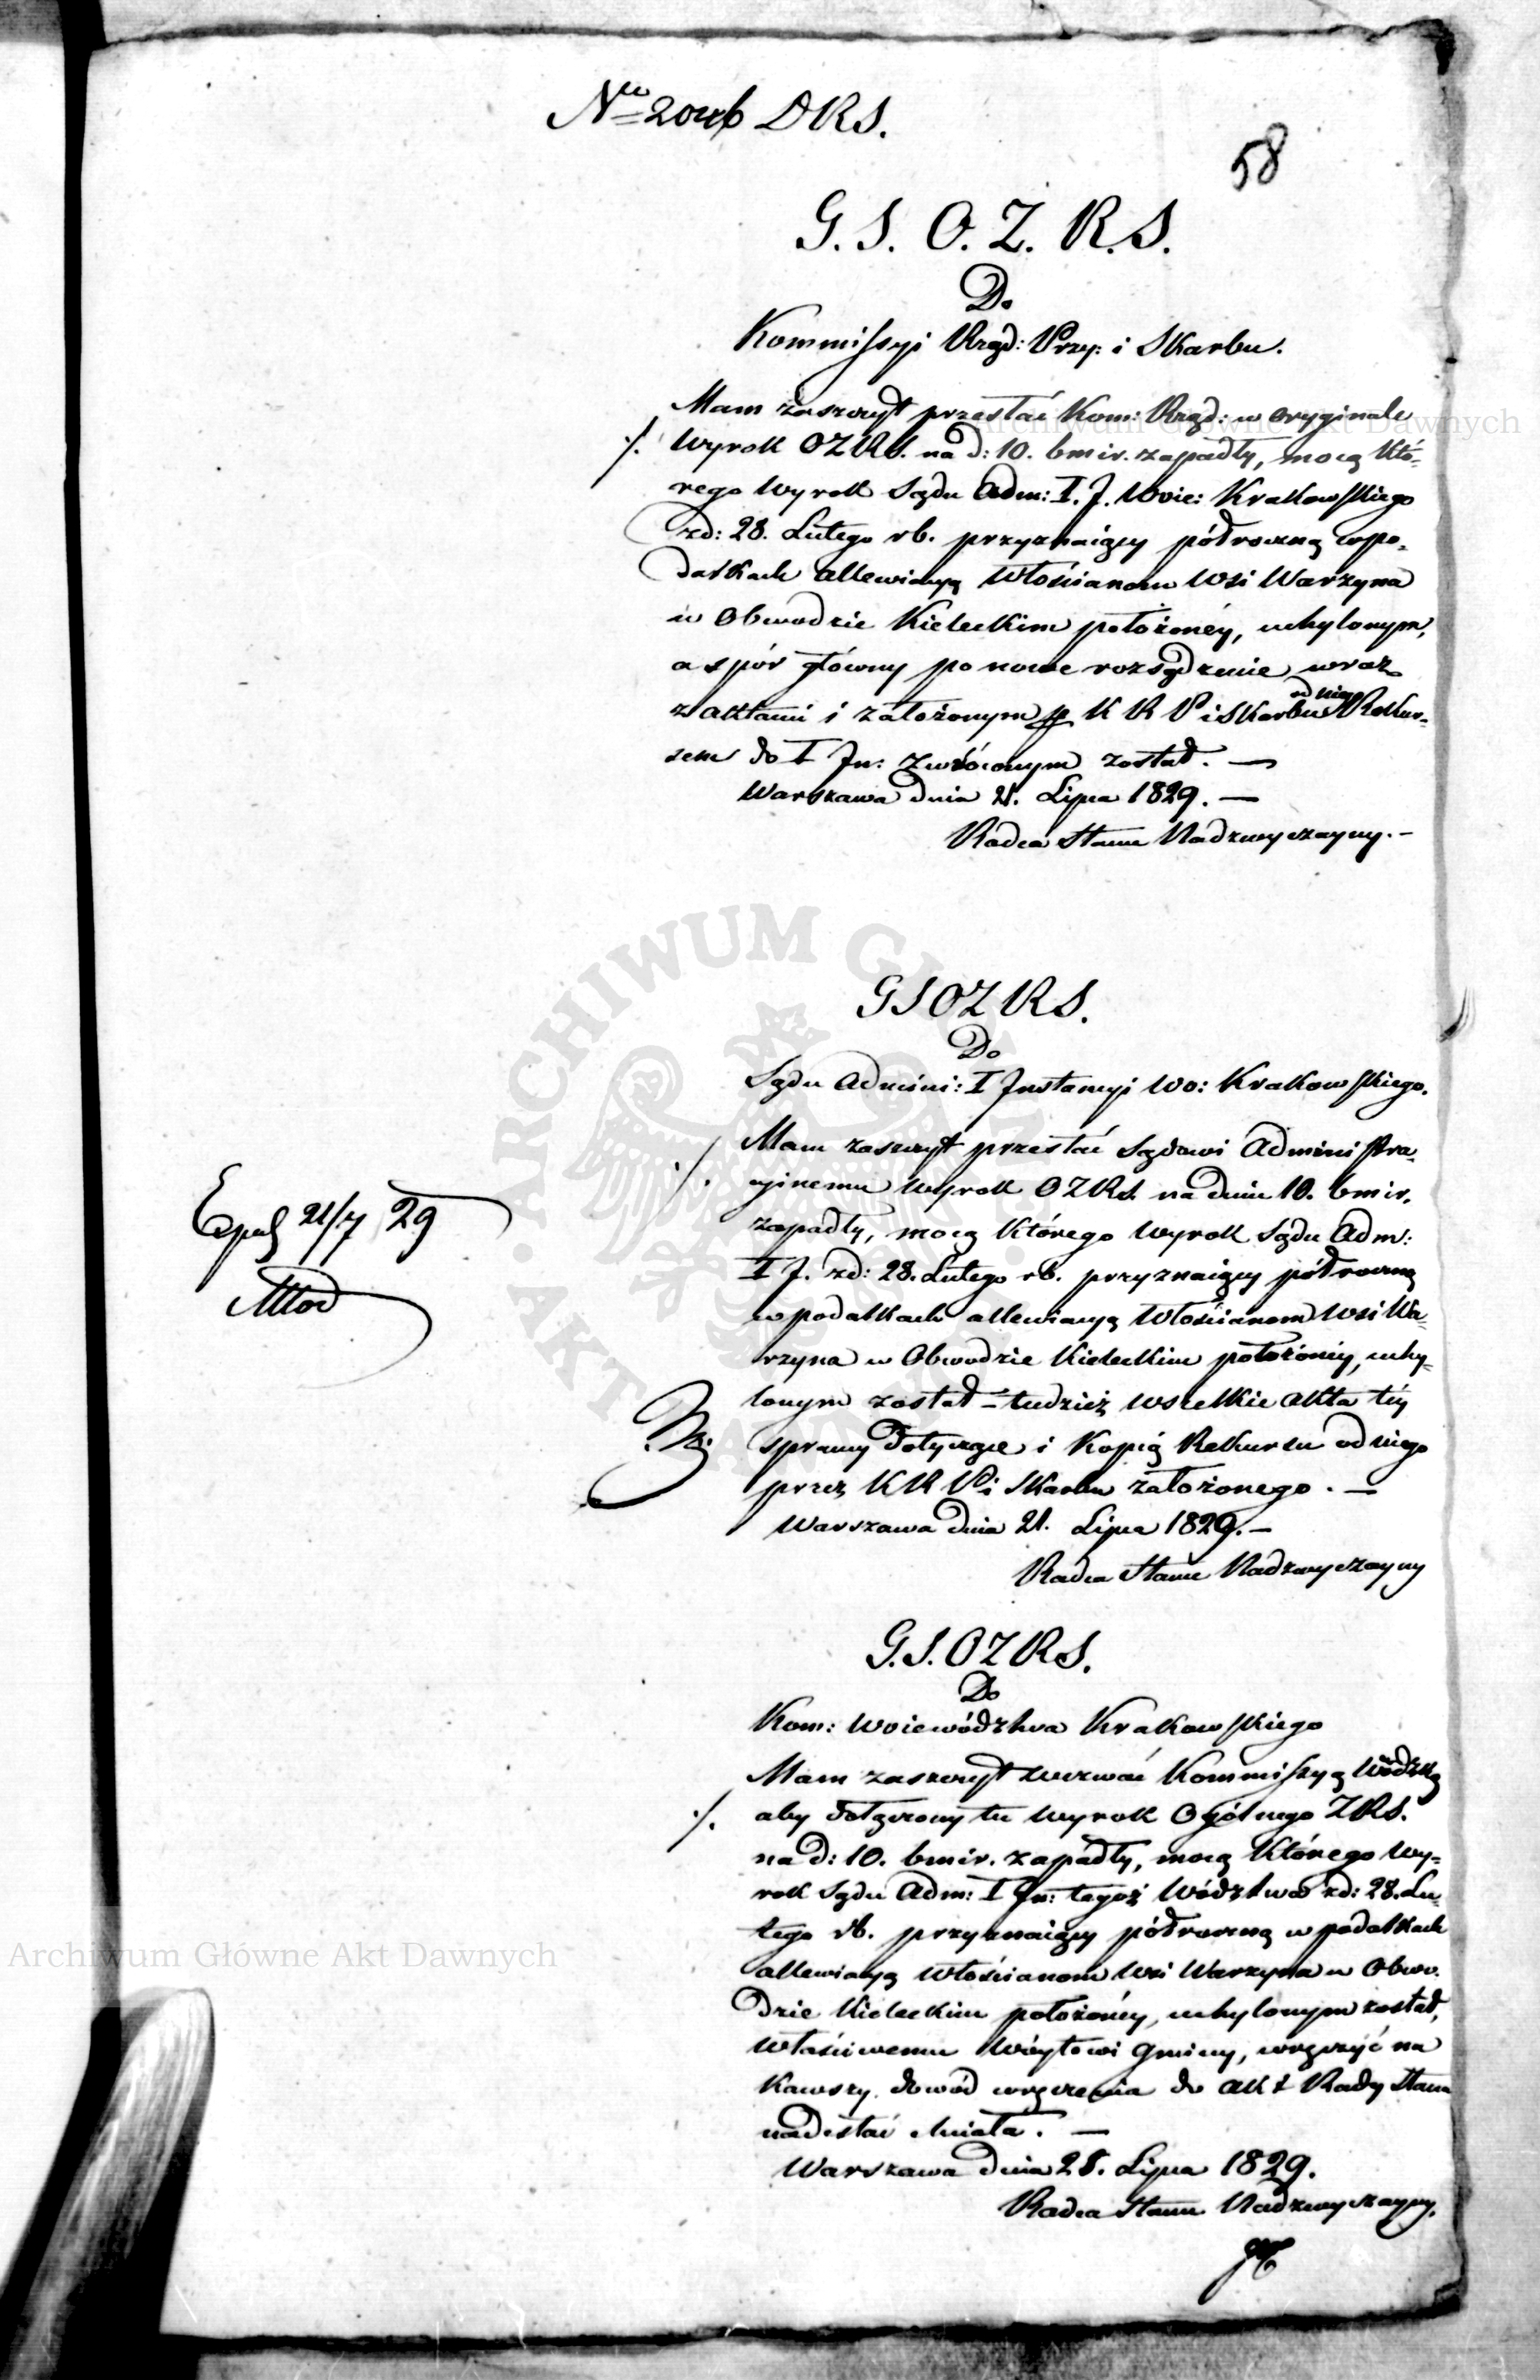 Nro 2046 DRS.
58
G. S. O. Z. R. S.
Do
Kommissyi Rząd: Przy: i Skarbu.
Mam zaszczyt przesłać Kom: Rząd: w oryginale
./. Wyrok OZRS. na d: 10. bm ir. zapadły, mocą któ-
rego Wyrok Sądu Adm: I. J. Woie: Krakowskiego
zd: 28. Lutego rb. przyznaiący półroczną w po-
datkach allewiacyą Włościanom Wsi Warzyna
w Obwodzie Kieleckim położonéy, uchylonym,
a spór główny po nowe rozsądzenie wraz
z aktami i założonym p K R P i Skarbu od niego Rekur-
sem do I Jn: zwróconym został. —
Warszawa dnia 21. Lipca 1829. —
Radca Stanu Nadzwyczayny. –
GSOZRS.
Do
Sądu Admini: I Instancyi Wo: Krakowskiego.
Mam zaszczyt przesłać Sądowi Administra-
./. cyinemu Wyrok OZRS. na dniu 10. bm ir.
zapadły, mocą którego Wyrok Sądu Adm:
I J. zd: 28. Lutego rb. przyznaiący półroczną
w podatkach allewiacyą Włościanom Wsi Wa-
rzyna w Obwodzie Kieleckim położonéy, uchy-
lonym został – tudzież wszelkie akta téy
sprawy dotyczące i Kopią Rekursu od niego
przez KRP i Skarbu założonego. —
Warszawa dnia 21. Lipca 1829. –
Radca Stanu Nadzwyczayny
Exped 21/7 29
G.S.OZRS.
Do
Kom: Woiewództwa Krakowskiego
Mam zaszczyt wezwać Kommissyą Wódzką
./. aby dołączony tu Wyrok Ogólnego ZRS.
na d: 10. bm ir. zapadły, mocą którego Wy-
rok Sądu Adm: I Jn: tegoż Wództwa zd: 28. Lu-
tego rb. przyznaiący półroczną w podatkach
allewiacyą Włościanom Wsi Warzyna w Obwo-
dzie Kieleckim położonéy, uchylonym został,
Właściwemu Wóytowi Gminy, wręczyć na
kazawszy, dowód wręczenia do akt Rady Stanu
nadesłać chciała. —
Warszawa dnia 21. Lipca 1829.
Radca Stanu Nadzwyczayny.
Archiwum Główne Akt Dawnych
Archiwum Główne Akt Dawnych
ARCHIWUM GŁÓWNE AKT DAWNYCH